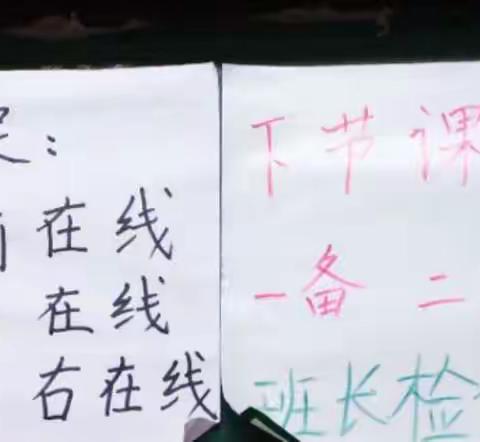 ：
在线
在线
右在线
下节课
一备 二
班长检